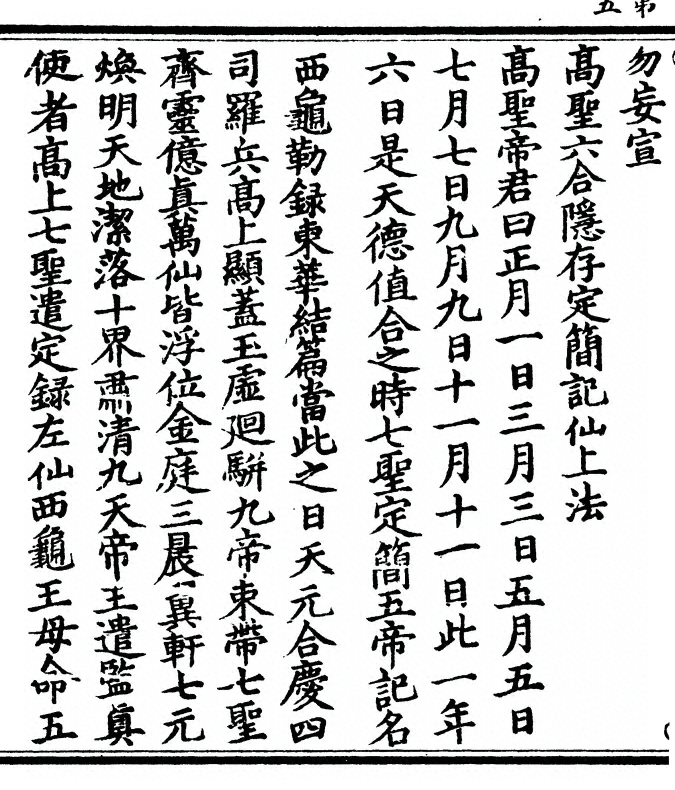 第五
勿妄宣
髙聖六合隱存定簡記仙上法
髙聖帝君曰正月一日三月三日五月五日
七月七日九月九日十一月十一日此一年
六日是天德值合之時七聖定簡五帝記名
西龜勒録東華結篇當此之日天元合慶四
司羅兵髙上顯蓋玉虛廻駢九帝束帶七聖
齊靈億眞萬仙皆浮位金庭三晨翼軒七元
煥明天地潔落十界肅清九天帝王遣監眞
使者髙上七聖遣定録左仙西龜王母命五